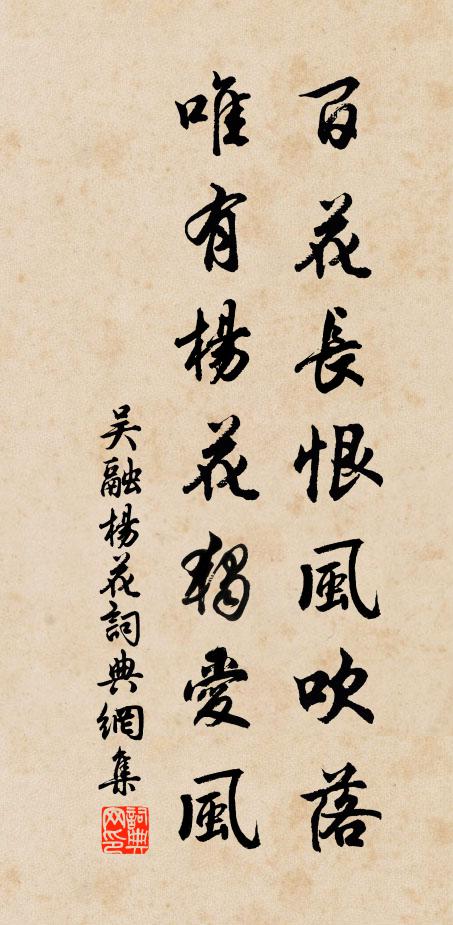 百花長恨風吹落
唯有楊花獨愛風
吴融楊花詞典網集
詞典網印